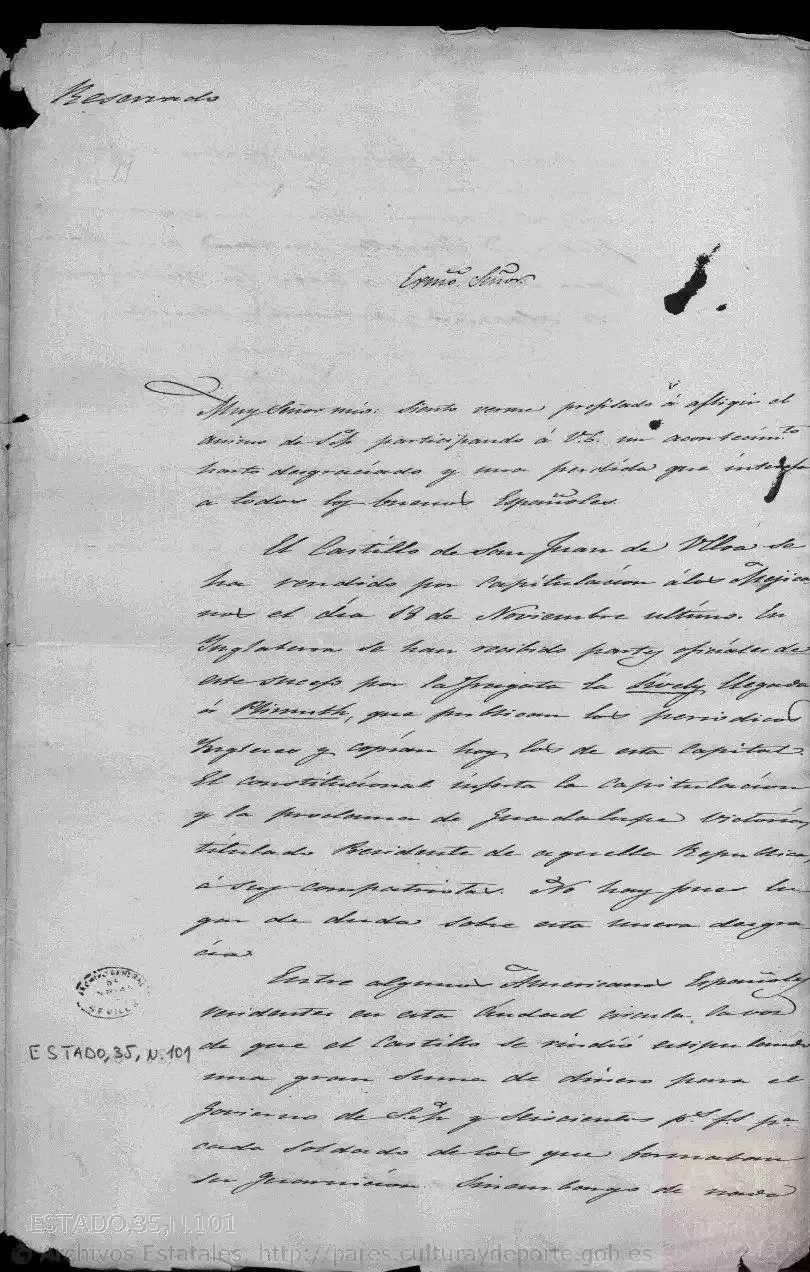 Reservado
Exmo. Señor
Muy Señor mio: Siento verme presisado á afligir el
animo de S.M. participando á V.E. un acontecimto
harto desgraciado y una perdida que interesa
a todos los buenos Españoles.
El Castillo de San Juan de Ulloa se
ha rendido por capitulacion á los Mejica
nos el dia 18 de Noviembre ultimo. En
Inglaterra se han recibido partes oficiales de
este suceso por la fragata la Lively, llegada
á Plimuth, que publican los periodicos
Ingleses y copian hoy los de esta Capital.
El constitucional inserta la Capitulacion
y la proclama de Guadalupe Victoria,
titulado Presidente de aquella Republica,
á sus compatriotas. No hay pues lu
gar de duda sobre esta nueva desgra
cia.
Entre algunos Americanos Españoles
residentes en esta Ciudad circula la voz
de que el Castillo se rindió estipulando
una gran suma de dinero para el
Govierno de S.M. y seiscientos ps. fs. pa.
cada soldado de los que formaban
su guarnicion. Sin embargo de
ARCHIVO GENERAL
DE
SEVILLA
ESTADO, 35, N.101
ESTADO,35,N.101
© Archivos Estatales, http://pares.culturaydeporte.gob.es